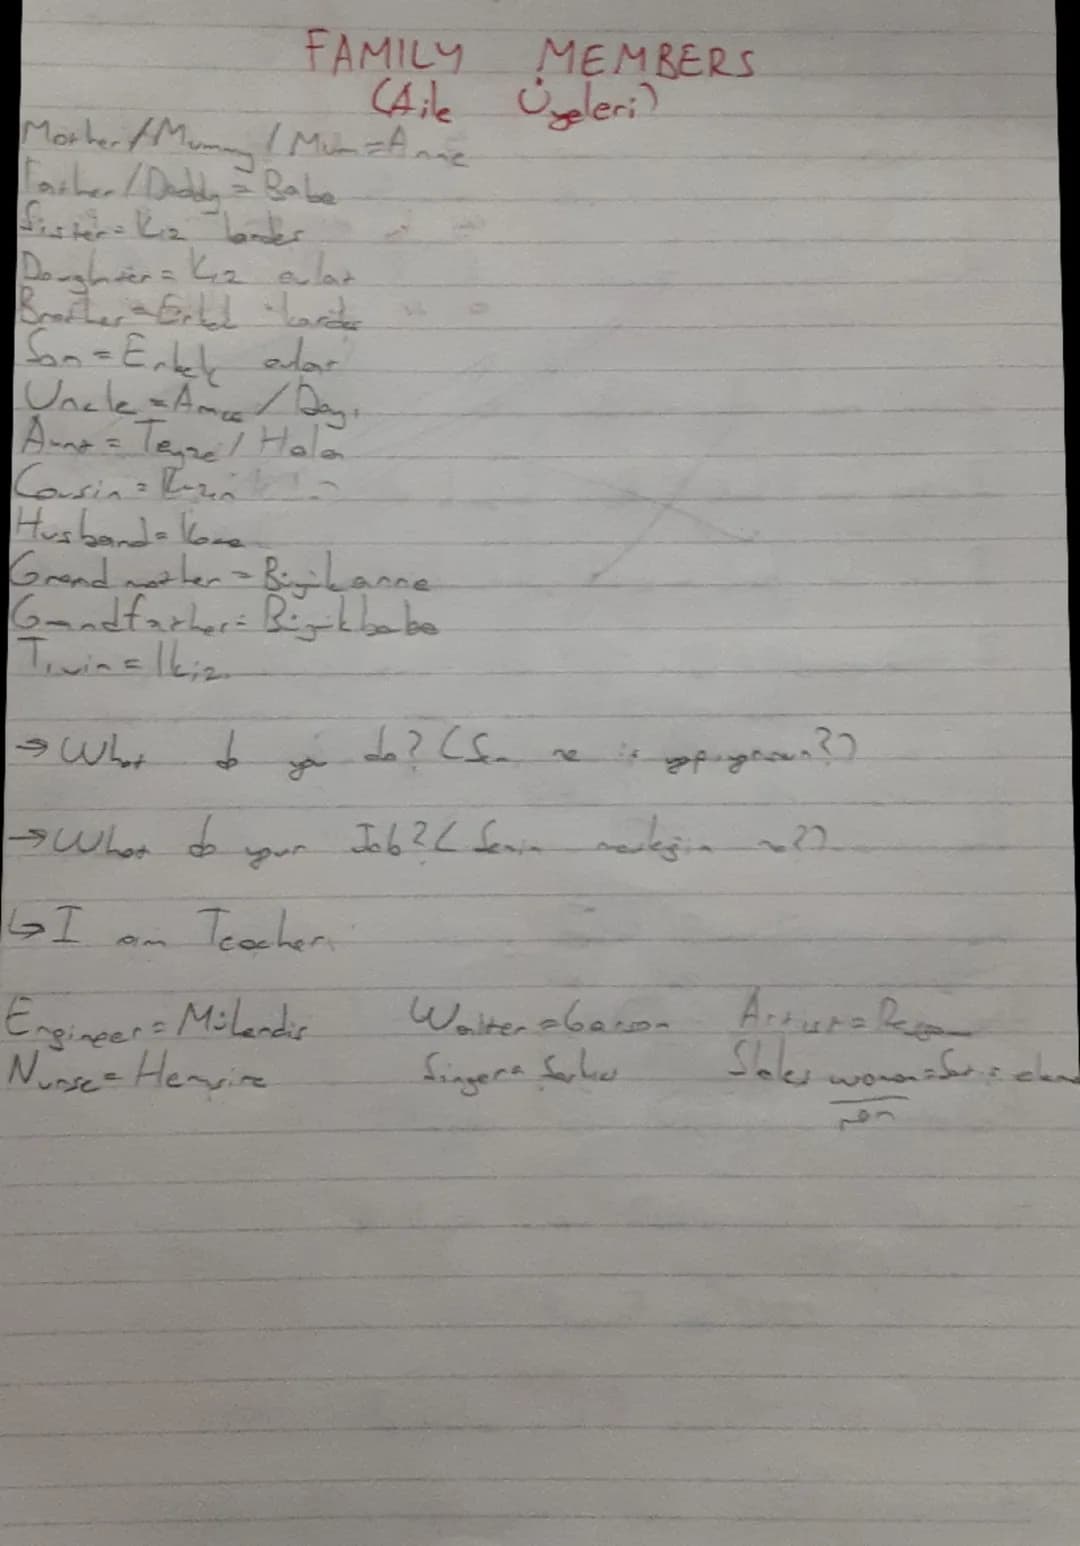 FAMILY MEMBERS
(Aile Üyeleri)
Mother / Mummy / Mum = Anne
Father / Daddy = Baba
Sister = Kız kardeş
Daughter = Kız evlat
Brother = Erkek kardeş
Son = Erkek evlat
Uncle = Amca / Dayı
Aunt = Teyze / Hala
Cousin = Kuzen
Husband = Koca
Grand mother = Büyükanne
Grandfather = Büyükbaba
Twin = Ikiz
→ What do you do? (Sen ne iş yapıyorsun?)
→ What do your Job? ( Senin mesleğin ne?)
↳ I am Teacher.
Engineer = Mühendis Waiter = Garson Artist = Ressam
Nurse = Hemşire Singer = Şarkıcı Sales woman =
man